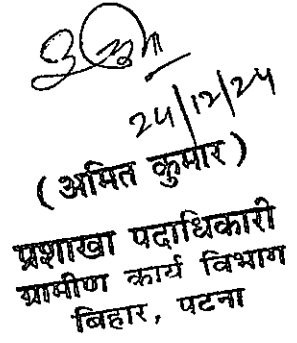 24/12/24
(अमित कुमार)
प्रशाखा पदाधिकारी
ग्रामीण कार्य विभाग
बिहार, पटना